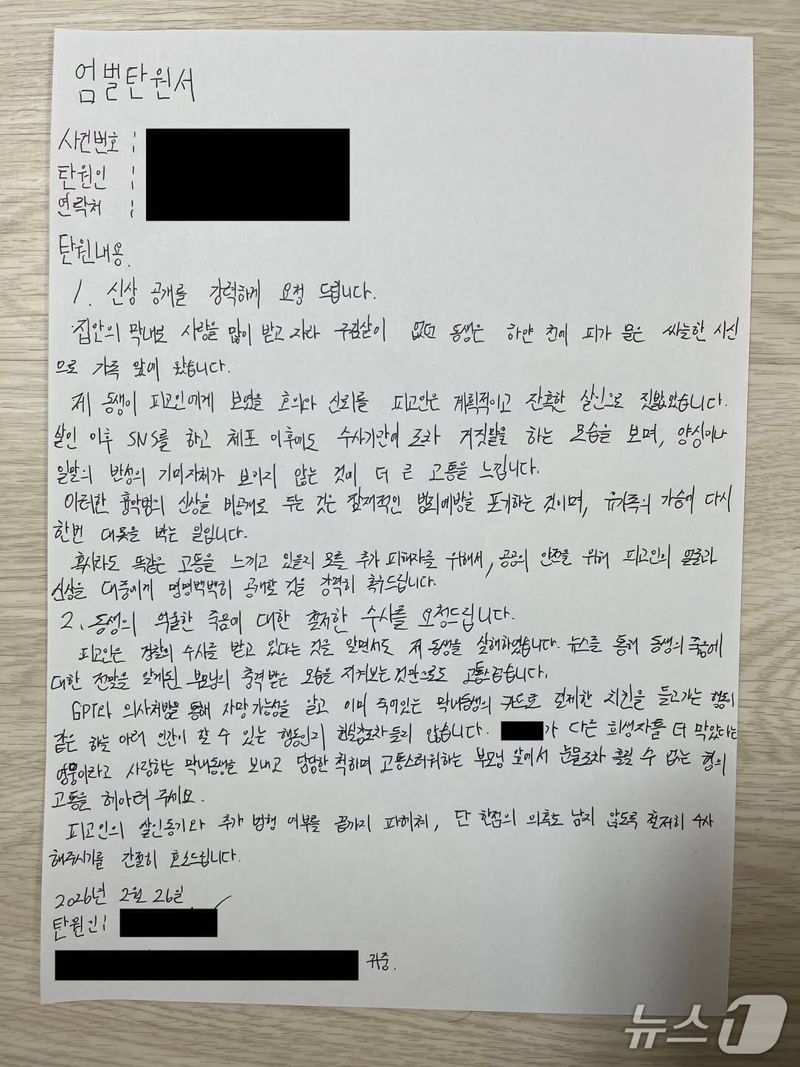 엄벌탄원서
사건번호 :
탄원인 :
연락처 :
탄원내용.
1. 신상 공개를 강력하게 요청 드립니다.
집안의 막내로 사랑을 많이 받고 자라 구김살이 없던 동생은 하얀 천에 피가 물은 싸늘한 시신
으로 가족 앞에 왔습니다.
제 동생이 피고인에게 보였을 호의와 신뢰를 피고인은 계획적이고 잔혹한 살인으로 짓밟았습니다.
살인 이후 SNS를 하고 체포 이후에도 수사기간에 조차 거짓말을 하는 모습을 보며, 양심이나
일말의 반성의 기미자체가 보이지 않는 것이 더 큰 고통을 느낍니다.
이러한 흉악범의 신상을 비공개로 두는 것은 잠재적인 범죄예방을 포기하는 것이며, 유가족의 가슴에 다시
한번 대못을 박는 일입니다.
혹시라도 똑같은 고통을 느끼고 있을지 모를 추가 피해자를 위해서, 공공의 안전을 위해 피고인의 얼굴과
신상을 대중에게 명명백백히 공개할 것을 강력히 촉구드립니다.
2. 동생의 억울한 죽음에 대한 철저한 수사를 요청드립니다.
피고인은 경찰의 수사를 받고 있다는 것을 알면서도 제 동생을 살해하였습니다. 뉴스를 통해 동생의 죽음에
대한 전말을 알게된 부모님의 충격받은 모습을 지켜보는것만으로도 고통스럽습니다.
GPT와 의사처방을 통해 사망가능성을 알고 이미 죽어있는 막내동생의 카드로 결제한 치킨을 들고가는 행동이
같은 하늘 아래 인간이 할 수 있는 행동인지 현실감조차 들지 않습니다. 가 다른 희생자를 더 막았다는
영웅이라고 사랑하는 막내동생을 보내고 담담한 척하며 고통스러워하는 부모님 앞에서 눈물조차 흘릴 수 없는 형의
고통을 헤아려 주세요.
피고인의 살인동기와 추가 범행 여부를 끝까지 파헤쳐, 단 한점의 의혹도 남지 않도록 철저히 수사
해주시기를 간절히 호소드립니다.
2026년 2월 26일
탄원인:
귀중.
뉴스1